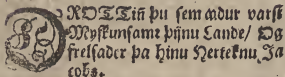 DROTTiñ þu sem ꜳdur varst
Myskunsamr þijnu Lande/ Og
frelsader þa hinu Herteknu, Ja
cobs.